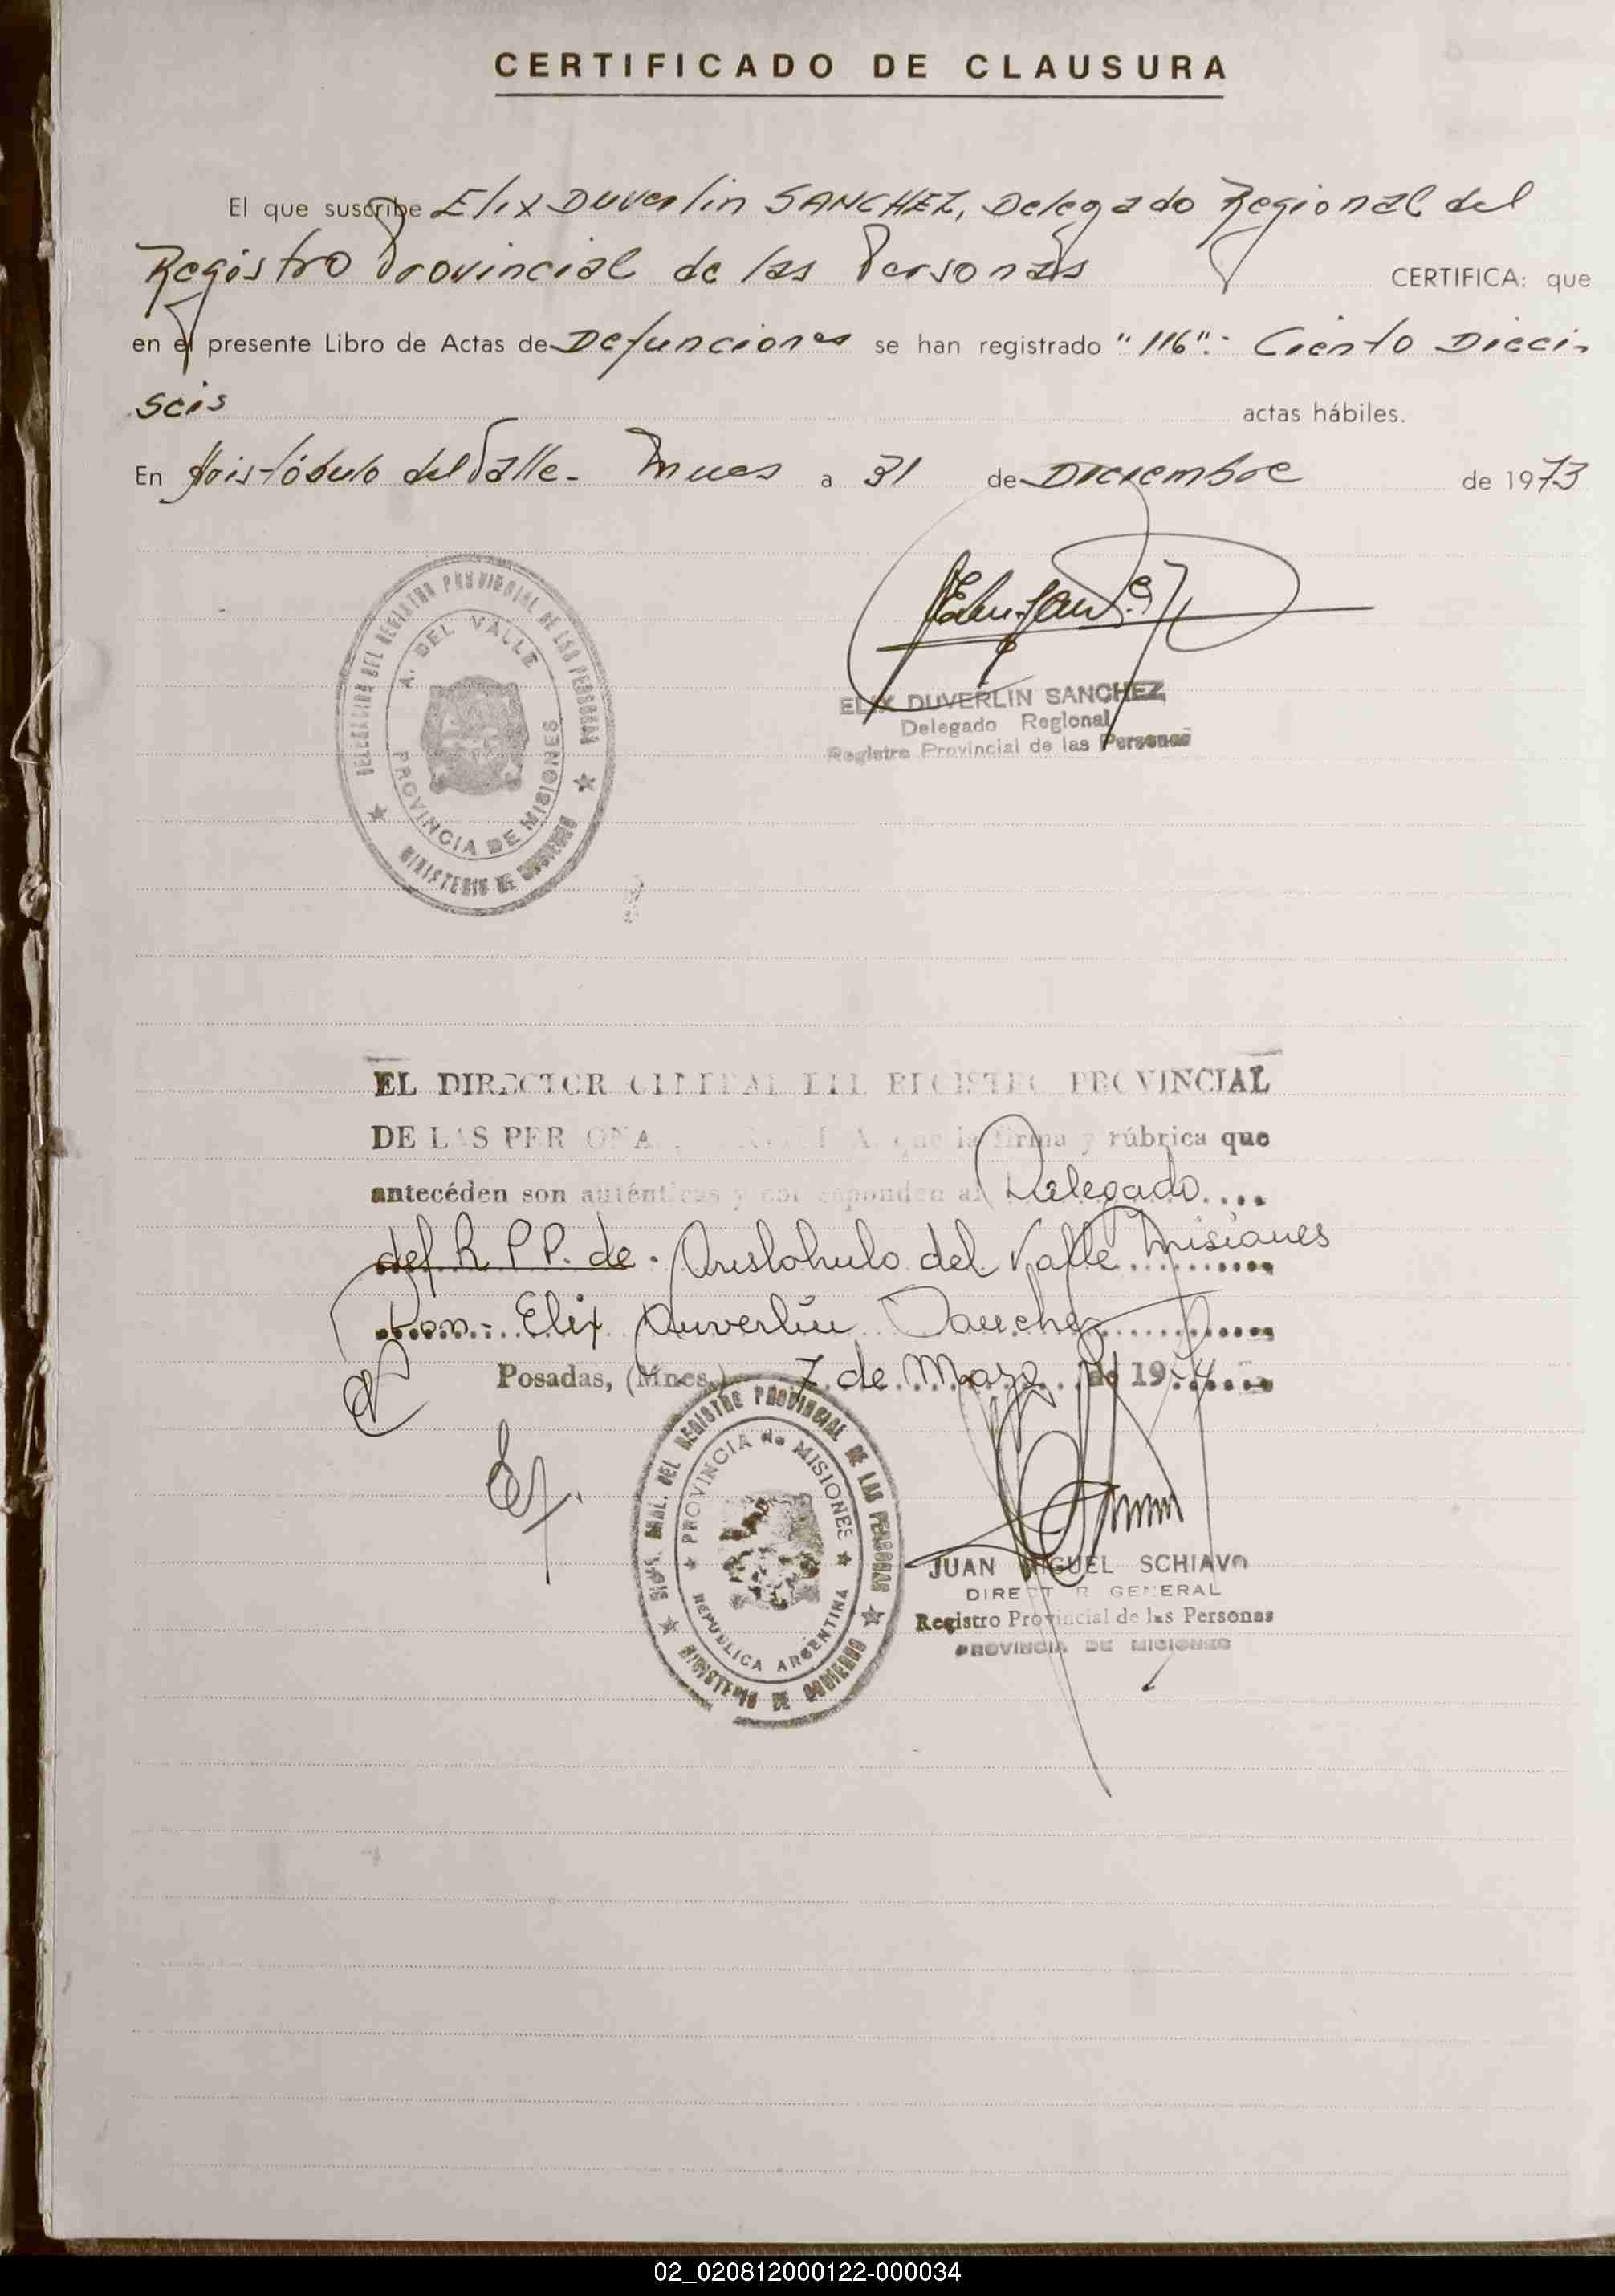 CERTIFICADO DE CLAUSURA
El que suscribe Elix Duverlin SANCHEZ, Delegado Regional del
Registro Provincial de las Personas CERTIFICA: que
en el presente Libro de Actas de Defunciones se han registrado "116".- Ciento Dieci-
seis actas hábiles.
En Aristóbulo del Valle- Mnes a 31 de Diciembre de 1973
DELEGACION DEL REGISTRO PROVINCIAL DE LAS PERSONAS
A. DEL VALLE
PROVINCIA DE MISIONES
MINISTERIO DE GOBIERNO
ELIX DUVERLIN SANCHEZ
Delegado Regional
Registro Provincial de las Personas
EL DIRECTOR GENERAL DEL REGISTRO PROVINCIAL
DE LAS PERSONAS, que la firma y rúbrica que
antecéden son auténticas y corresponden al Delegado....
del R.P.P. de. Aristobulo del Valle Misiones
Don.- Elix Duverlin Sanchez
Posadas, (Mnes.) 7 de Marzo de 1974
GRAL. DEL REGISTRO PROVINCIAL DE LAS PERSONAS
PROVINCIA de MISIONES
REPUBLICA ARGENTINA
MINISTERIO DE GOBIERNO
JUAN MIGUEL SCHIAVO
DIRECTOR GENERAL
Registro Provincial de las Personas
PROVINCIA DE MISIONES
02_020812000122-000034